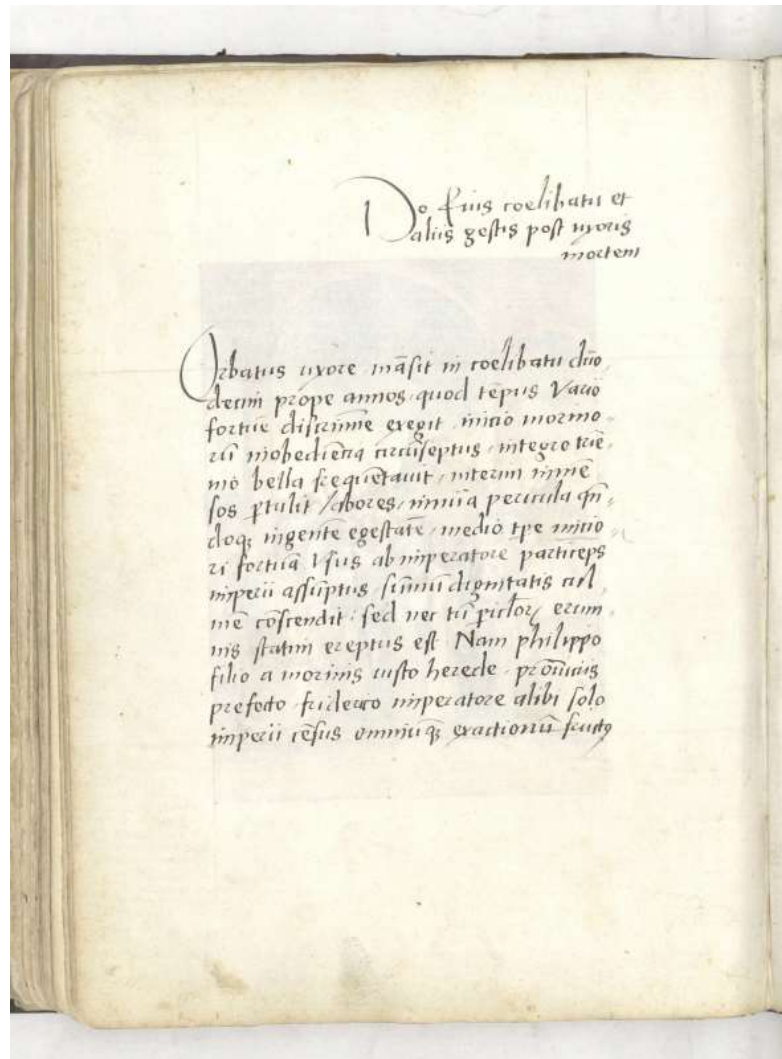 De Eius coelibatu et
aliis gestis post uxoris
mortem
Orbatus uxore māsit in coelibatu duo,
decim prope annos, quod tēpus Vario
fortūe discrimine exegit, inicio mormo-
rū inobediencia circūseptus, integro trie,
nio bella frequētavit, interim īmē
sos ꝑtulit labores, nimia pericula qn̄,
doqꝫ ingentē egestatē, medio tp̄e inicio
ri fortūa Vsus ab imperatore particeps
imperii assūptus, sūmū dignitatis cul,
mē cōscendit: sed nec tū ꝑiclorꝫ erum,
nis statim ereptus est. Nam philippo
filio a morinis iusto herede, prouīciis
prefecto friderico imperatore alibi solo
imperii cēsus omniūqꝫ exactionū fructꝰ